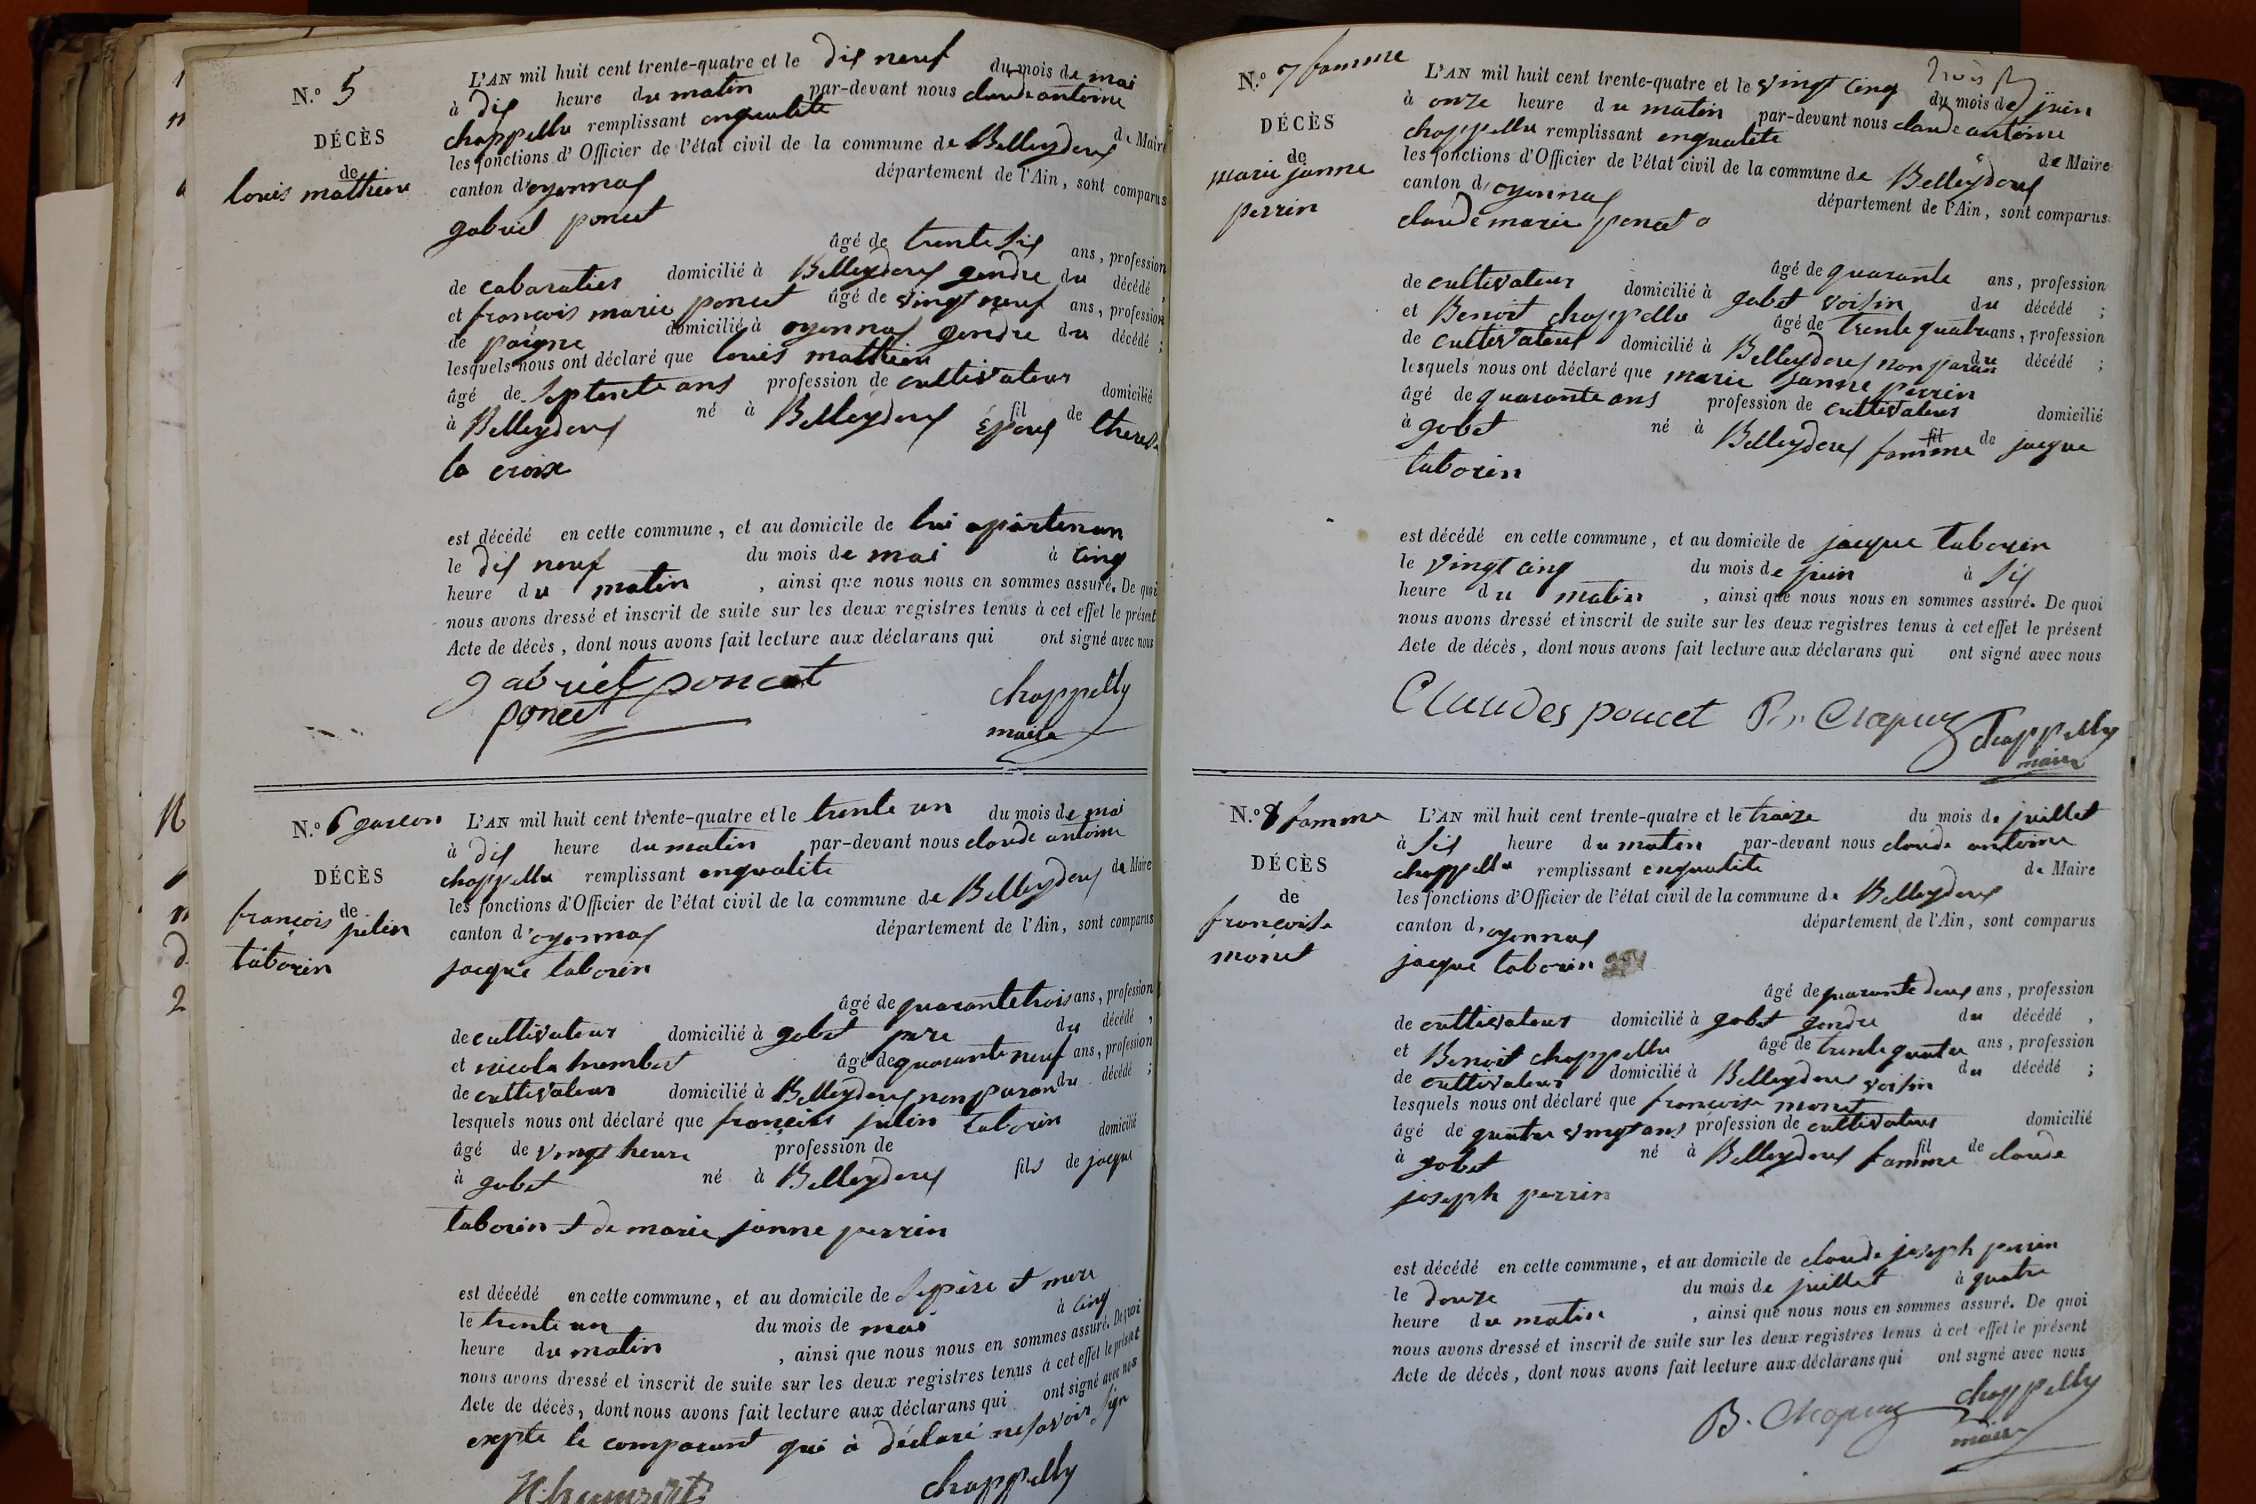 N.º 5
DÉCÈS
de
louis mathieu
L'AN mil huit cent trente-quatre et le dis neuf du mois de mai
à dis heure du matin par-devant nous claude antoine
chappellu remplissant enqualité de Maire
les fonctions d'Officier de l'état civil de la commune de Belleydoux
canton d'oyonnax département de l'Ain, sont comparus
gabriel poncet
âgé de trente sis ans, profession
de cabaratier domicilié à Belleydoux gendre du décédé,
et francois marie poncet âgé de vingt neuf ans, profession
de paigne domicilié à oyonnax gendre du décédé ;
lesquels nous ont déclaré que louis mathieu
âgé de septente ans profession de cultivateur domicilié
à Belleydoux né à Belleydoux fil époux de therese
la croix
est décédé en cette commune, et au domicile de lui apartenan
le dis neuf du mois de mai à cinq
heure du matin, ainsi que nous nous en sommes assuré. De quoi
nous avons dressé et inscrit de suite sur les deux registres tenus à cet effet le présent
Acte de décès, dont nous avons fait lecture aux déclarans qui ont signé avec nous
gabriel poncet
poncet
chappelly
maire
N.º 6 garcon
DÉCÈS
de
francois julien
taborin
L'AN mil huit cent trente-quatre et le trente un du mois de mai
à dis heure du matin par-devant nous claude antoine
chappellu remplissant enqualite de Maire
les fonctions d'Officier de l'état civil de la commune de Belleydoux
canton d'oyonnax département de l'Ain, sont comparus
jacque taborin
âgé de quarante trois ans, profession
de cultivateur domicilié à gobet pere du décédé,
et nicola humbert âgé de quarante neuf ans, profession
de cultivateur domicilié à Belleydoux non paran du décédé ;
lesquels nous ont déclaré que francois julien taborin
âgé de vingt heure profession de domicilié
à gobet né à Belleydoux fils de jacque
taborin et de marie janne perrin
est décédé en cette commune, et au domicile de se père et mere
le trente un du mois de mai à cinq
heure du matin, ainsi que nous nous en sommes assuré. De quoi
nous avons dressé et inscrit de suite sur les deux registres tenus à cet effet le présent
Acte de décès, dont nous avons fait lecture aux déclarans qui ont signé avec nous
expte le comparant qui à déclaré ne savoir sign
chappelly
N.º 7 famme
DÉCÈS
de
marie janne
perrin
L'AN mil huit cent trente-quatre et le vingt cinq du mois de juin
à onze heure du matin par-devant nous claude antoine
chappellu remplissant enqualité de Maire
les fonctions d'Officier de l'état civil de la commune de Belleydoux
canton d'oyonnax département de l'Ain, sont comparus
claude marie poncet
âgé de quarante ans, profession
de cultivateur domicilié à gobet voisin du décédé ;
et Benoit chappellu âgé de trente quatre ans, profession
de cultivateur domicilié à Belleydoux non paran du décédé ;
lesquels nous ont déclaré que marie janne perrin
âgé de quarante ans profession de cultivateur domicilié
à gobet né à Belleydoux fil famme de jacque
taborin
est décédé en cette commune, et au domicile de jacque taborin
le vingt cinq du mois de juin à sis
heure du matin, ainsi que nous nous en sommes assuré. De quoi
nous avons dressé et inscrit de suite sur les deux registres tenus à cet effet le présent
Acte de décès, dont nous avons fait lecture aux déclarans qui ont signé avec nous
Claudes poncet
chappelly
maire
N.º 8 famme
DÉCÈS
de
francoise
monet
L'AN mil huit cent trente-quatre et le traize du mois de juillet
à sis heure du matin par-devant nous claude antoine
chappellu remplissant enqualité de Maire
les fonctions d'Officier de l'état civil de la commune de Belleydoux
canton d'oyonnax département de l'Ain, sont comparus
jacque taborin
âgé de quarante deux ans, profession
de cultivateur domicilié à gobet gendre du décédé,
et Benoit chappellu âgé de trente quatre ans, profession
de cultivateur domicilié à Belleydoux voisin du décédé ;
lesquels nous ont déclaré que francoise monet
âgé de quatre vingt ans profession de cultivateur domicilié
à gobet né à Belleydoux fil famme de claude
joseph perrin
est décédé en cette commune, et au domicile de claude joseph perrin
le douze du mois de juillet à quatre
heure du matin, ainsi que nous nous en sommes assuré. De quoi
nous avons dressé et inscrit de suite sur les deux registres tenus à cet effet le présent
Acte de décès, dont nous avons fait lecture aux déclarans qui ont signé avec nous
chappelly
maire